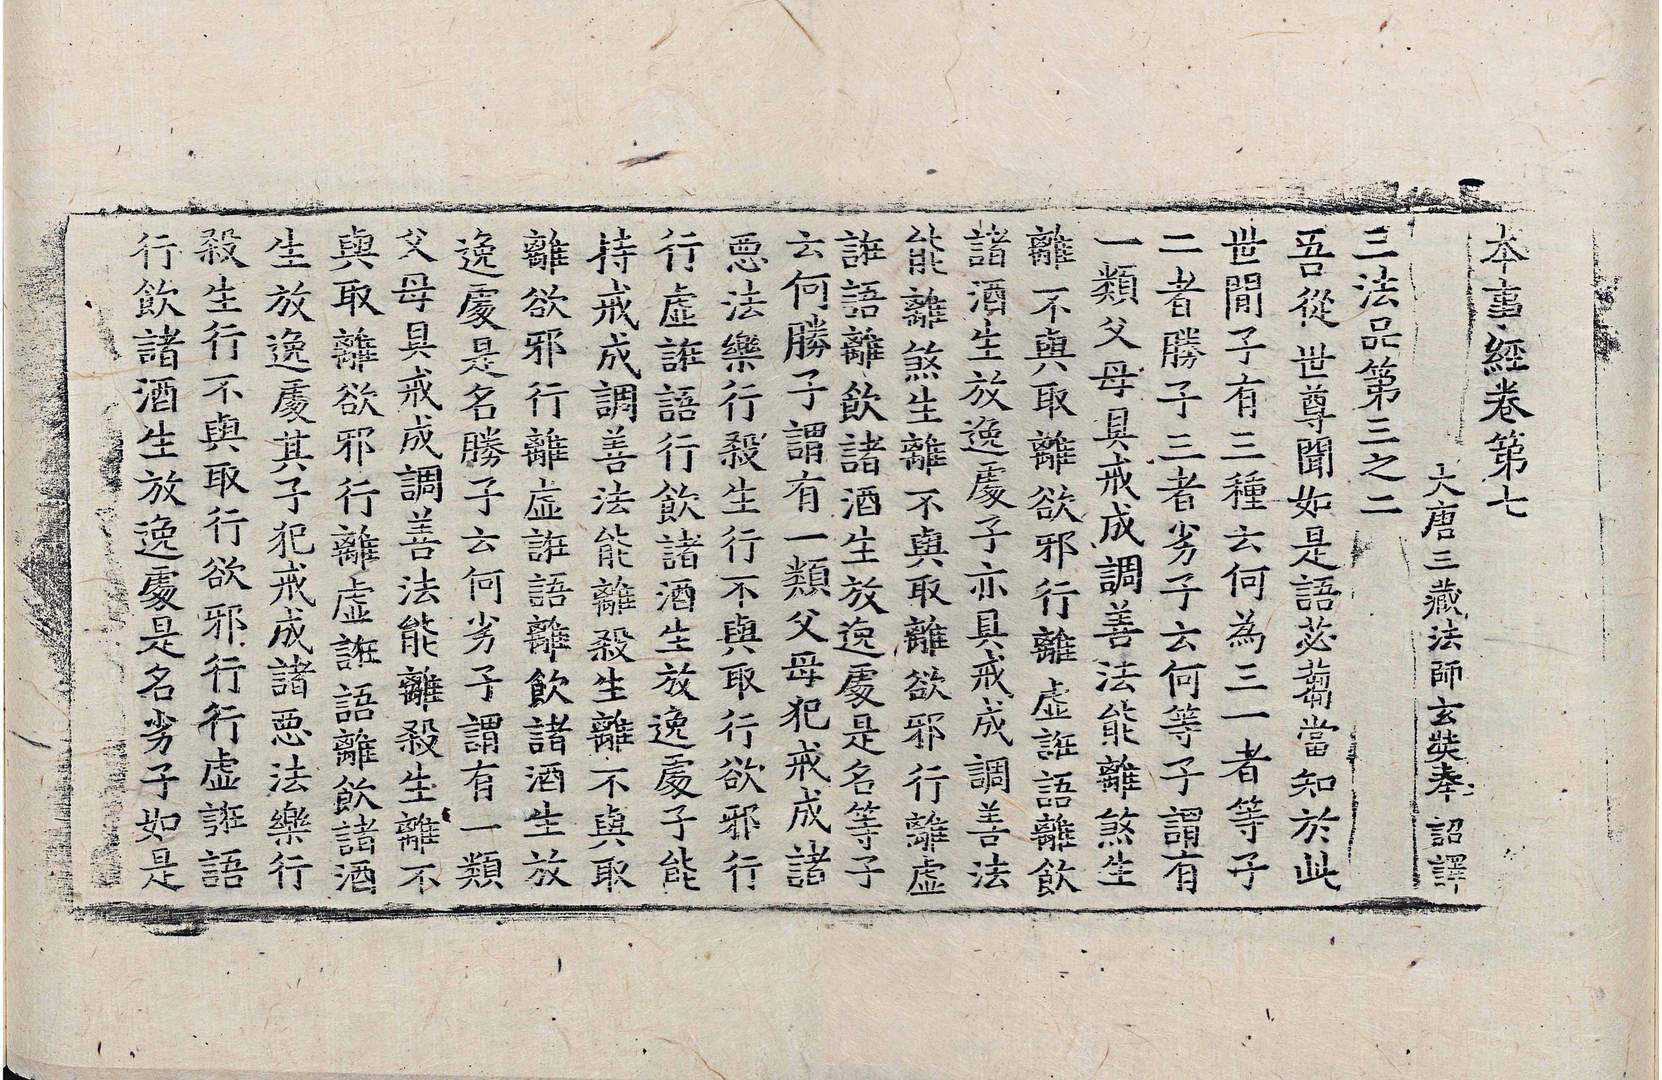 本事經卷第七
大唐三藏法師玄奘奉 詔譯
三法品第三之二
吾從世尊聞如是語苾蒭當知於此
世間子有三種云何為三一者等子
二者勝子三者劣子云何等子謂有
一類父母具戒成調善法能離煞生
離不與取離欲邪行離虛誑語離飲
諸酒生放逸處子亦具戒成調善法
能離煞生離不與取離欲邪行離虛
誑語離飲諸酒生放逸處是名等子
云何勝子謂有一類父母犯戒成諸
惡法樂行殺生行不與取行欲邪行
行虛誑語行飲諸酒生放逸處子能
持戒成調善法能離殺生離不與取
離欲邪行離虛誑語離飲諸酒生放
逸處是名勝子云何劣子謂有一類
父母具戒成調善法能離殺生離不
與取離欲邪行離虛誑語離飲諸酒
生放逸處其子犯戒成諸惡法樂行
殺生行不與取行欲邪行行虛誑語
行飲諸酒生放逸處是名劣子如是